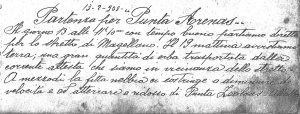 13-2-908-
Partenza per Punta Arenas.
Il giorno 13 alle 11½ con tempo buono partiamo diretti
per lo stretto di Magellano. Il 13 mattina avvistiamo
terra; una gran quantità di erba trasportata dalla
corrente attesta che siamo in vicinanza dello stretto.
A mezzodì la fitta nebbia ci costringe a diminuire di
velocità e ad atterrare a ridosso di Punta